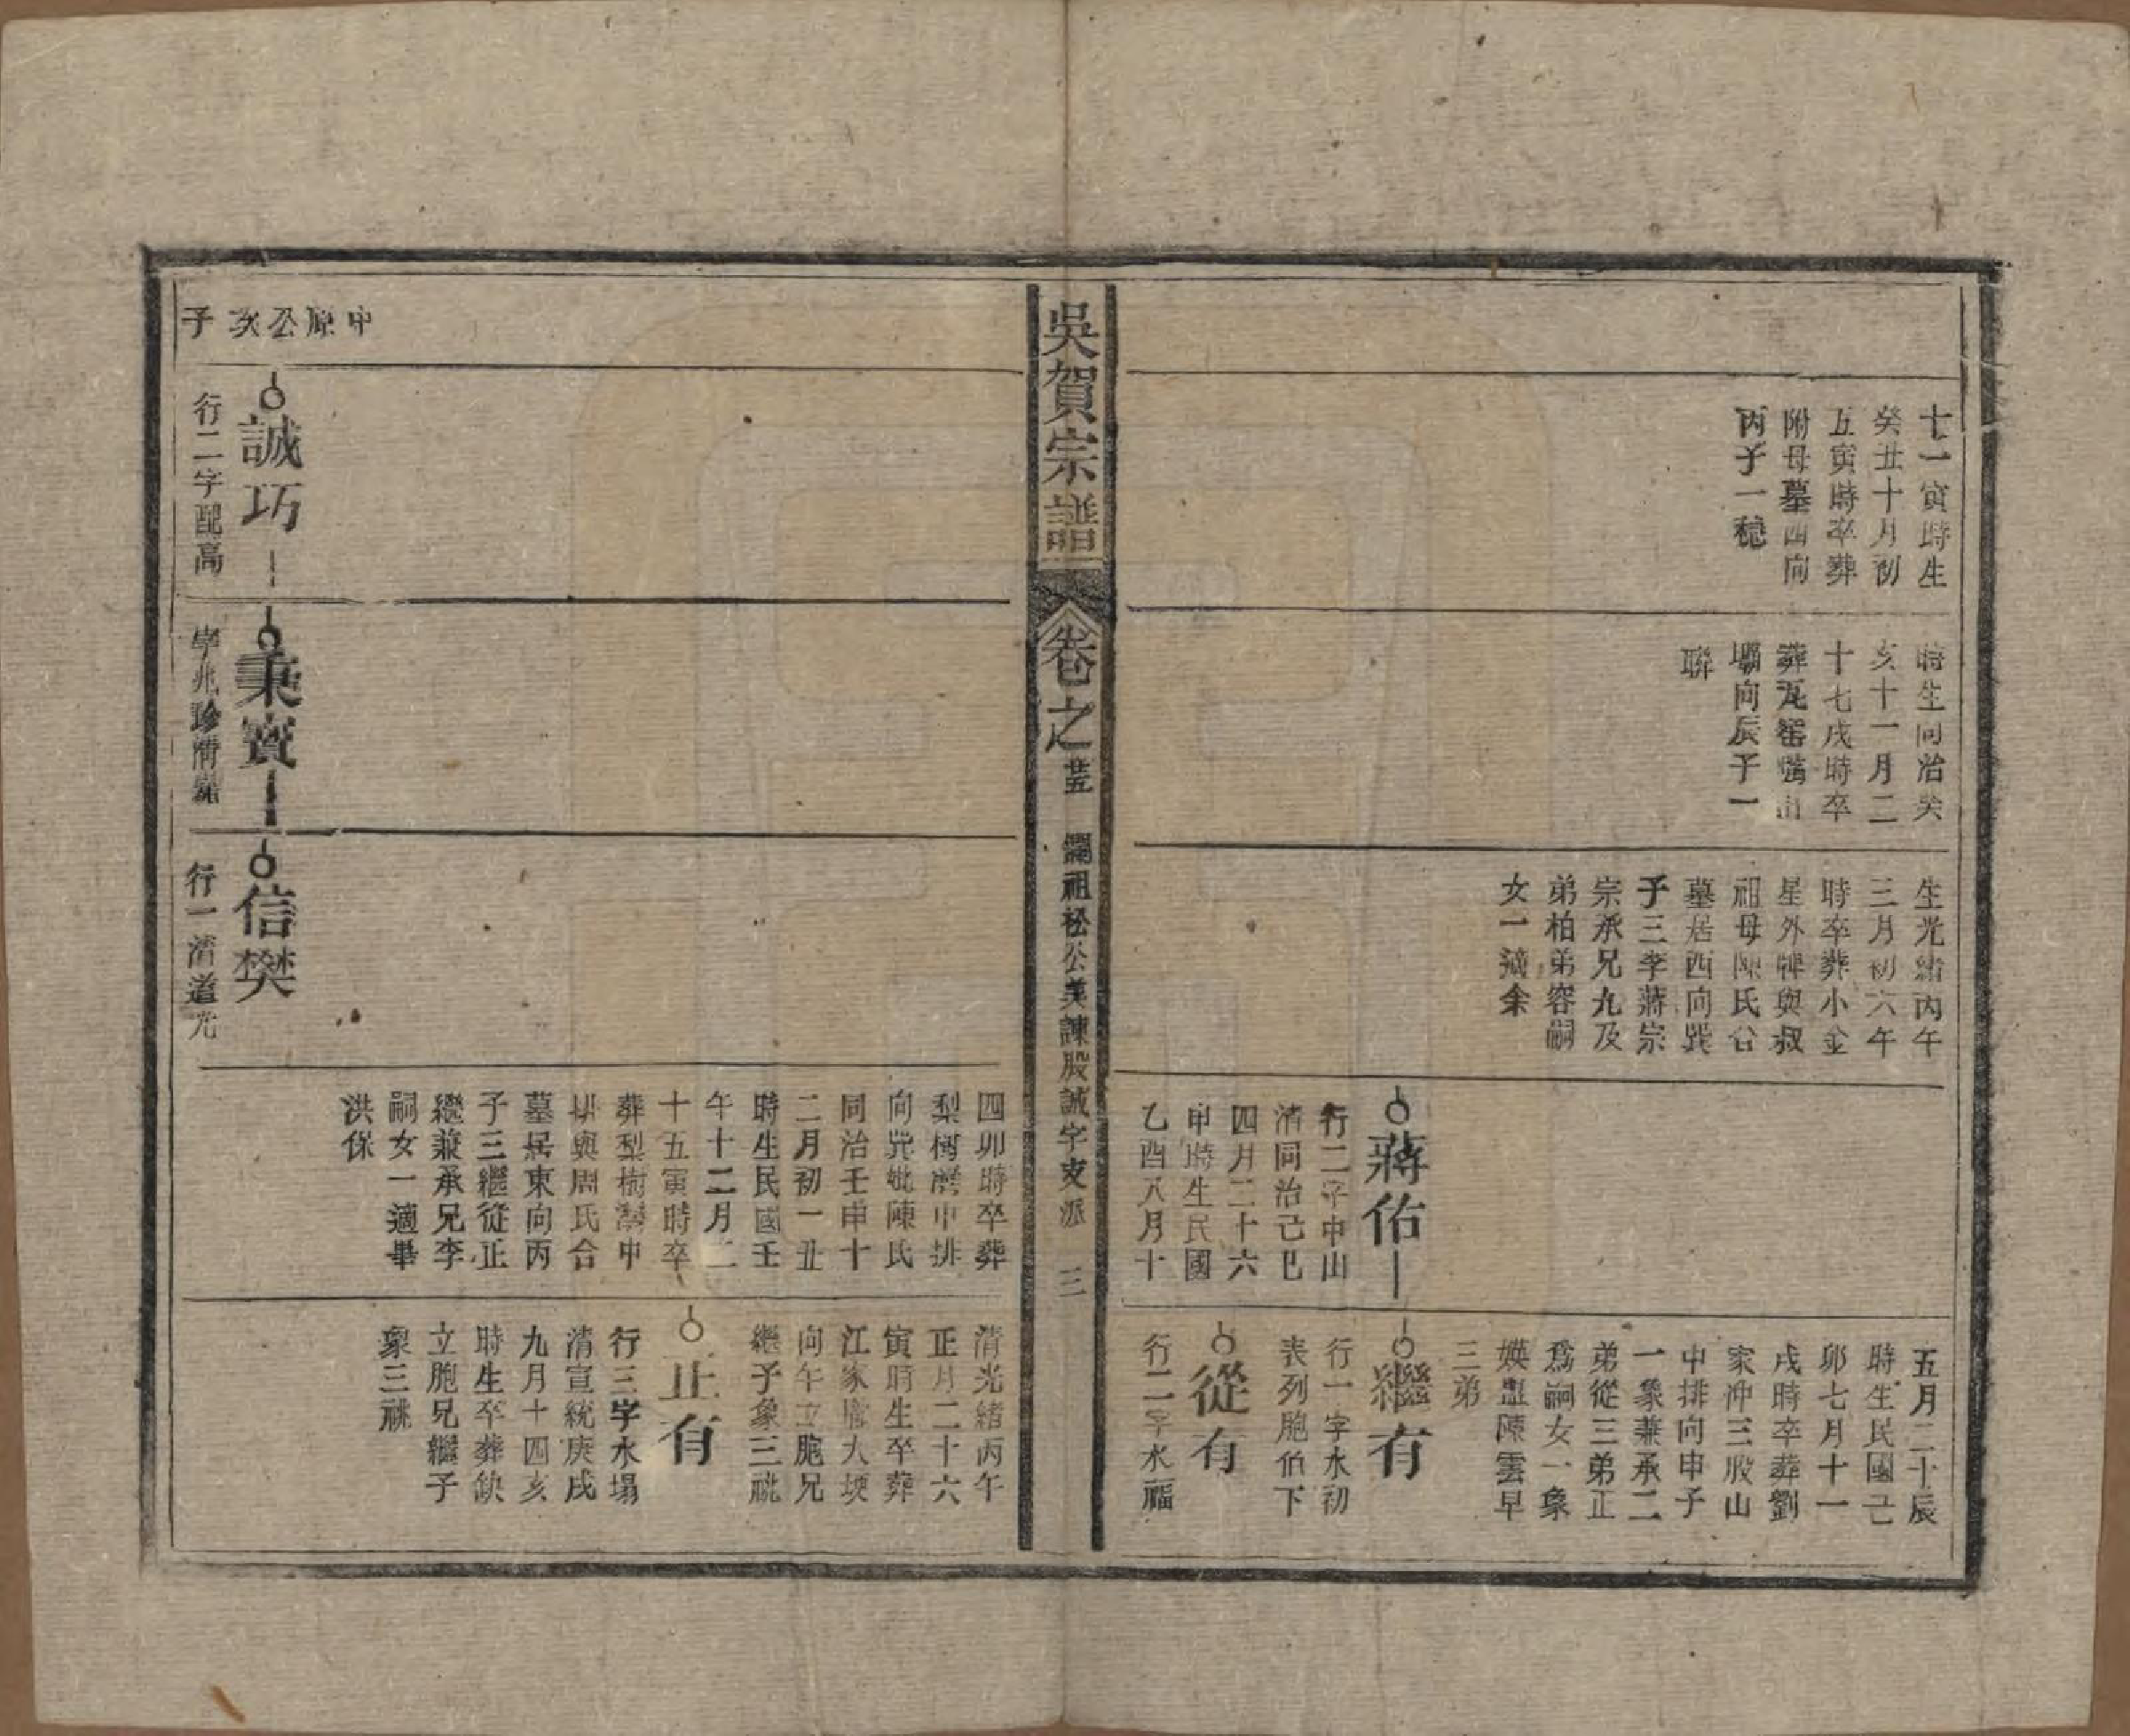 十一寅時生
癸丑十月初
五寅時卒葬
附母墓酉向
丙子一穗
時生同治癸
亥十一月二
十七戌時卒
葬瓦窰嘴山
壩向辰子一
聯
生光緒丙午
三月初六午
時卒葬小金
星外牌與叔
祖母陳氏合
墓居酉向巽
子三李蔣宗
宗承兄九及
弟柏弟容嗣
女一適余
蔣佑
行二字中山
清同治己巳
四月二十六
申時生民國
乙酉八月十
五月二十辰
時生民國己
卯七月十一
戌時卒葬劉
家冲三股山
申排向申子
一象兼承二
弟從三弟正
爲嗣女一象
媖盟陳雲早
三弟
繼有
行一字水初
丧列胞伯下
從有
行二字水福
吳賀宗譜
卷之廿五
鬮祖松公美諫股誠字支派
三
四卯時卒葬
梨樹灣中排
向巽妣陳氏
同治壬申十
二月初一丑
時生民國壬
午十二月二
十五寅時卒
葬梨樹灣中
排與周氏合
墓居東向丙
子三繼從正
繼兼承兄李
嗣女一適畢
洪保
清光緒丙午
正月二十六
寅時生卒葬
江家隴大堎
向午立胞兄
繼子象三祧
正有
行三字水塌
清宣統庚戌
九月十四亥
時生卒葬缺
立胞兄繼子
象三祧
中原公次子
誠巧
行二字配高
秉寳
字兆珍清嘉
信樊
行一清道光